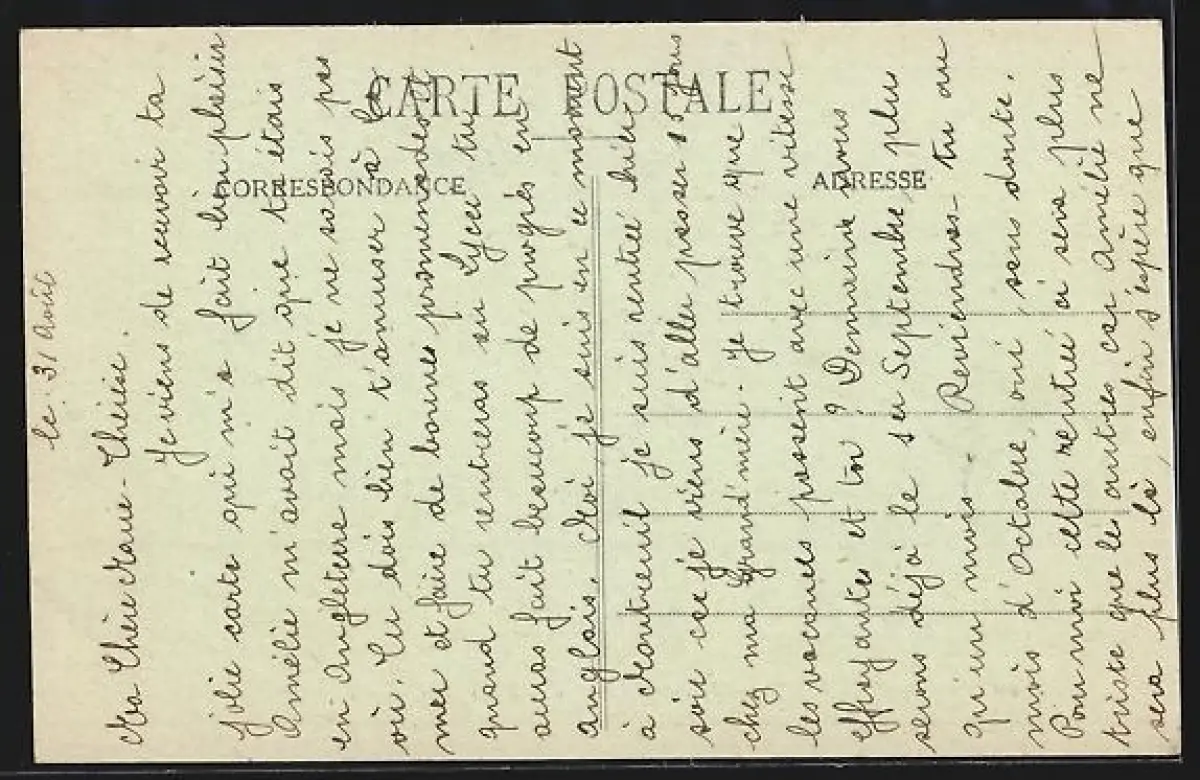 CARTE POSTALE
CORRESPONDANCE
ADRESSE
le 31 Août
Ma Chère Marie-Thérèse.
Je viens de recevoir ta
jolie carte qui m'a fait bien plaisir
Amélie m'avait dit que tu étais
en Angleterre mais je ne savais pas
où. Tu dois bien t'amuser à la
mer et faire de bonnes promenades et
quand tu rentreras au Lycée tu
auras fait beaucoup de progrès en
anglais. Moi je suis en ce moment
à Montreuil je suis rentrée hier
soir car je viens d'aller passer 8 jours
chez ma Grand'mère. Je trouve que
les vacances passent avec une vitesse
effrayantes et toi ? Demain nous
serons déjà le 1er Septembre, plus
qu'un mois. Reviendras-tu au
mois d'Octobre, oui sans doute.
Pour moi cette rentrée ci sera plus
triste que le autres car Amélie ne
sera plus là, enfin j'espère que